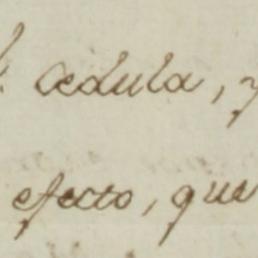 cedula, y
efecto, que